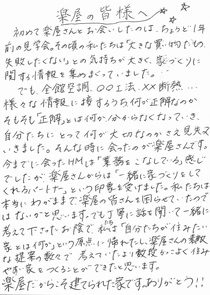 楽屋の皆様へ
初めて楽屋さんとお会いしたのは、ちょうど1年
前の見学会。その頃の私たちは「大きな買い物だもの、
失敗したくない」との気持ちが大きく、家づくりに
関する情報を集めまくっていました。
でも、全館空調、○○工法、××断熱…
様々な情報に接するうち何が正解なのか
そもそも「正解」とは何か分からなくなっていき、
自分たちにとって何が大切なのかさえ見失って
いきました。そんな時に会ったのが楽屋さんです。
今までに会ったHMは「業務をこなしている」感じ
でしたが楽屋さんからは「一緒に家づくりをして
くれるパートナー」という印象を受けました。私たちは
本当にわがままで楽屋の皆さんを困らせていたので
はないかと思います。でも丁寧に話を聞いて一緒に
考えて下さったお陰で私は「自分たちが住みたい
家とは何か」という原点に帰れたし、楽屋さんの素敵
な提案の数々で考えていたより数段カッコよく住み
やすい家をつくることができたと思います。
楽屋だからこそ建てられた家です。ありがとう!!